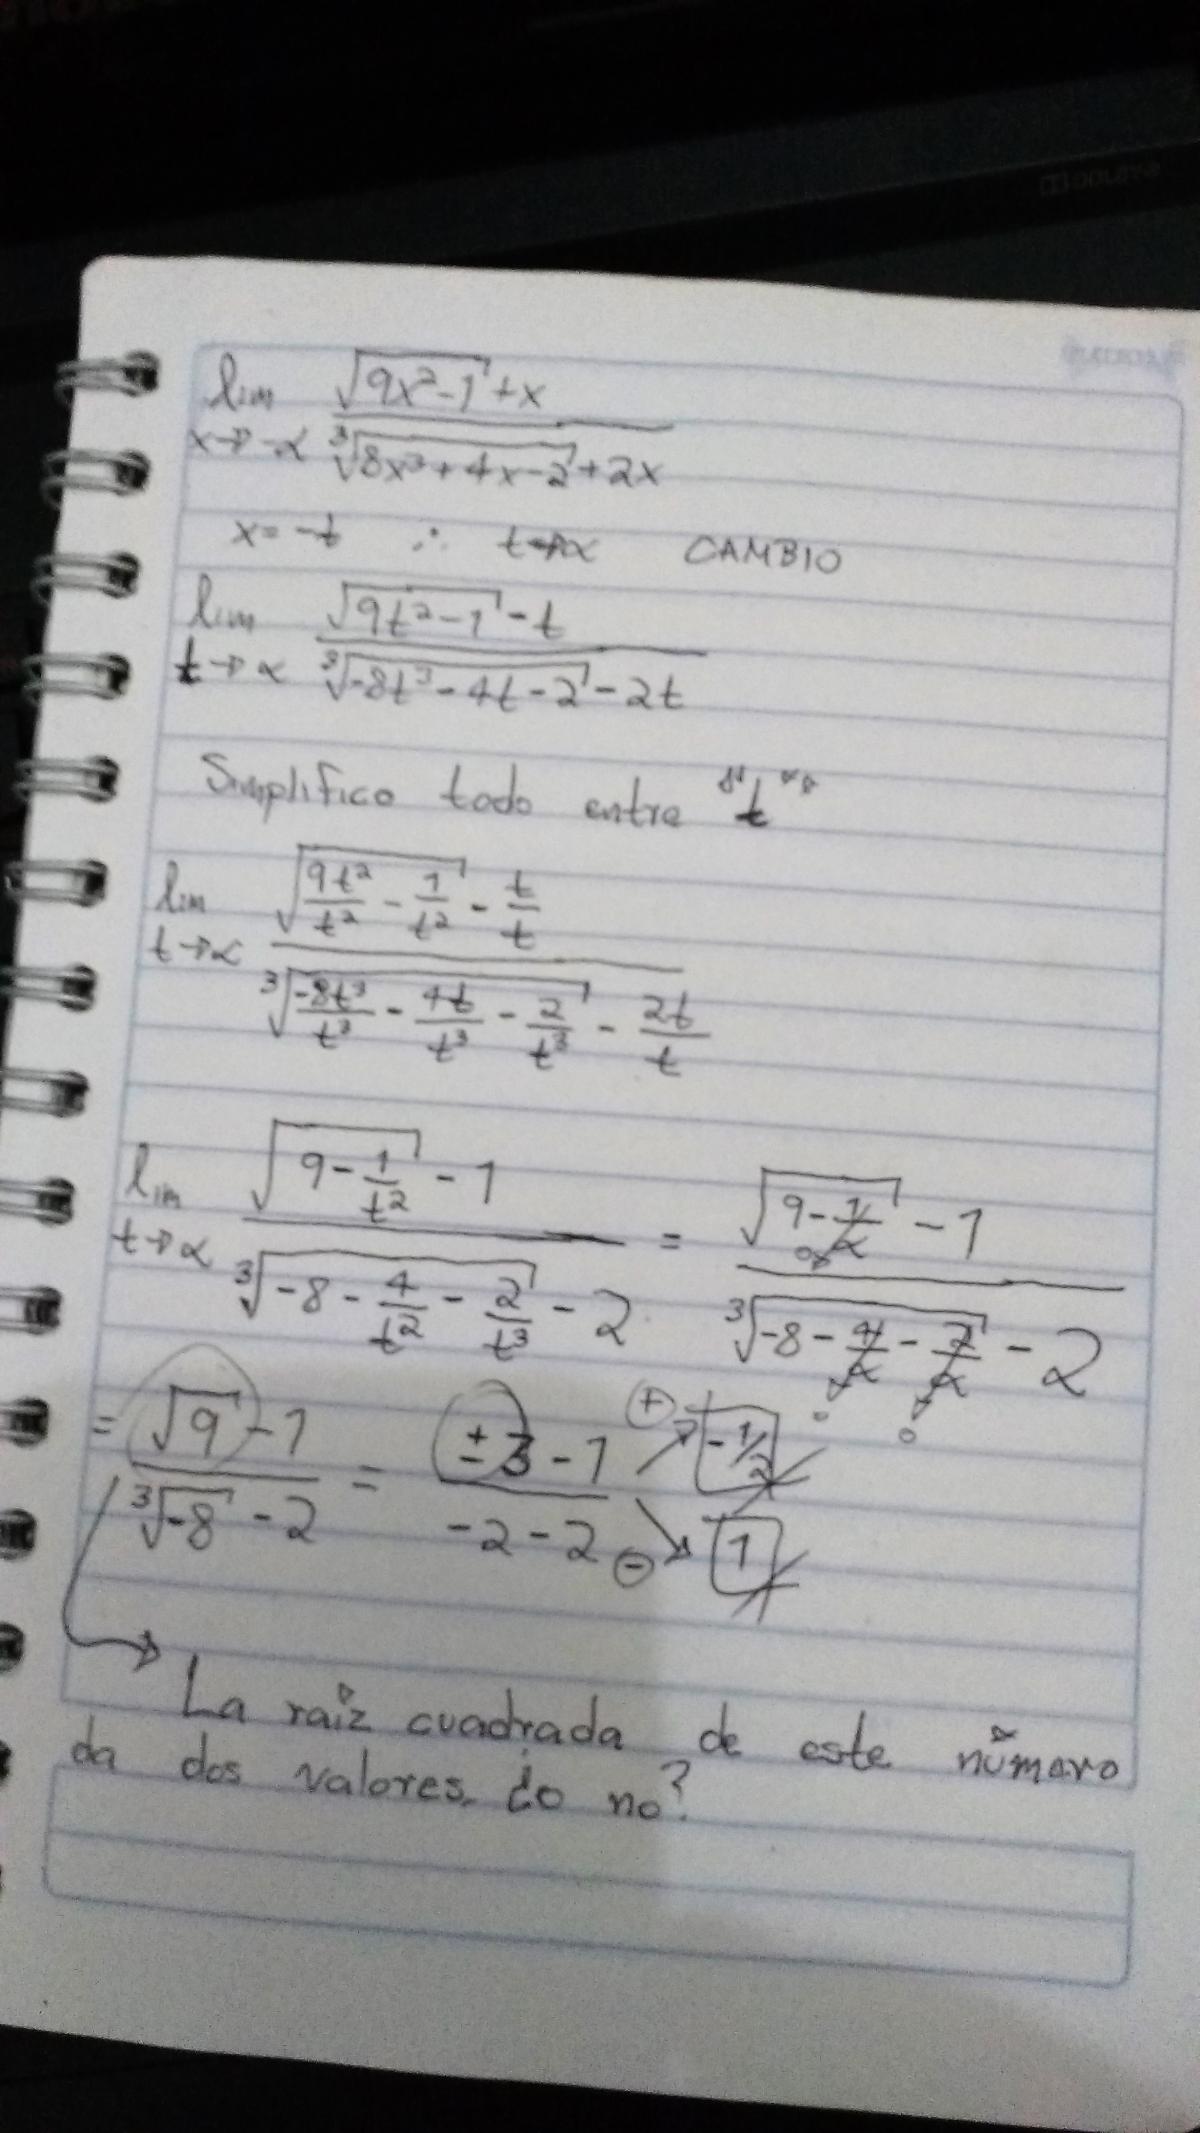 DOLBY
lim √(9x²-1) + x
x→-∝ ∛(8x³+4x-2) + 2x
x = -t ∴ t→∝ CAMBIO
lim √(9t²-1) - t
t→∝ ∛(-8t³-4t-2) - 2t
Simplifico todo entre "t"
lim √(9t²/t² - 1/t²) - t/t
t→∝ ∛(-8t³/t³ - 4t/t³ - 2/t³) - 2t/t
lim √(9 - 1/t²) - 1 = √(9 - 1/∝) - 1
t→∝ ∛(-8 - 4/t² - 2/t³) - 2 ∛(-8 - 4/∝ - 2/∝) - 2
0 0 0
= √9 - 1 = ±3 - 1 + → -1/2
∛-8 - 2 -2 - 2 - → 1
→ La raíz cuadrada de este número
da dos valores. ¿o no?